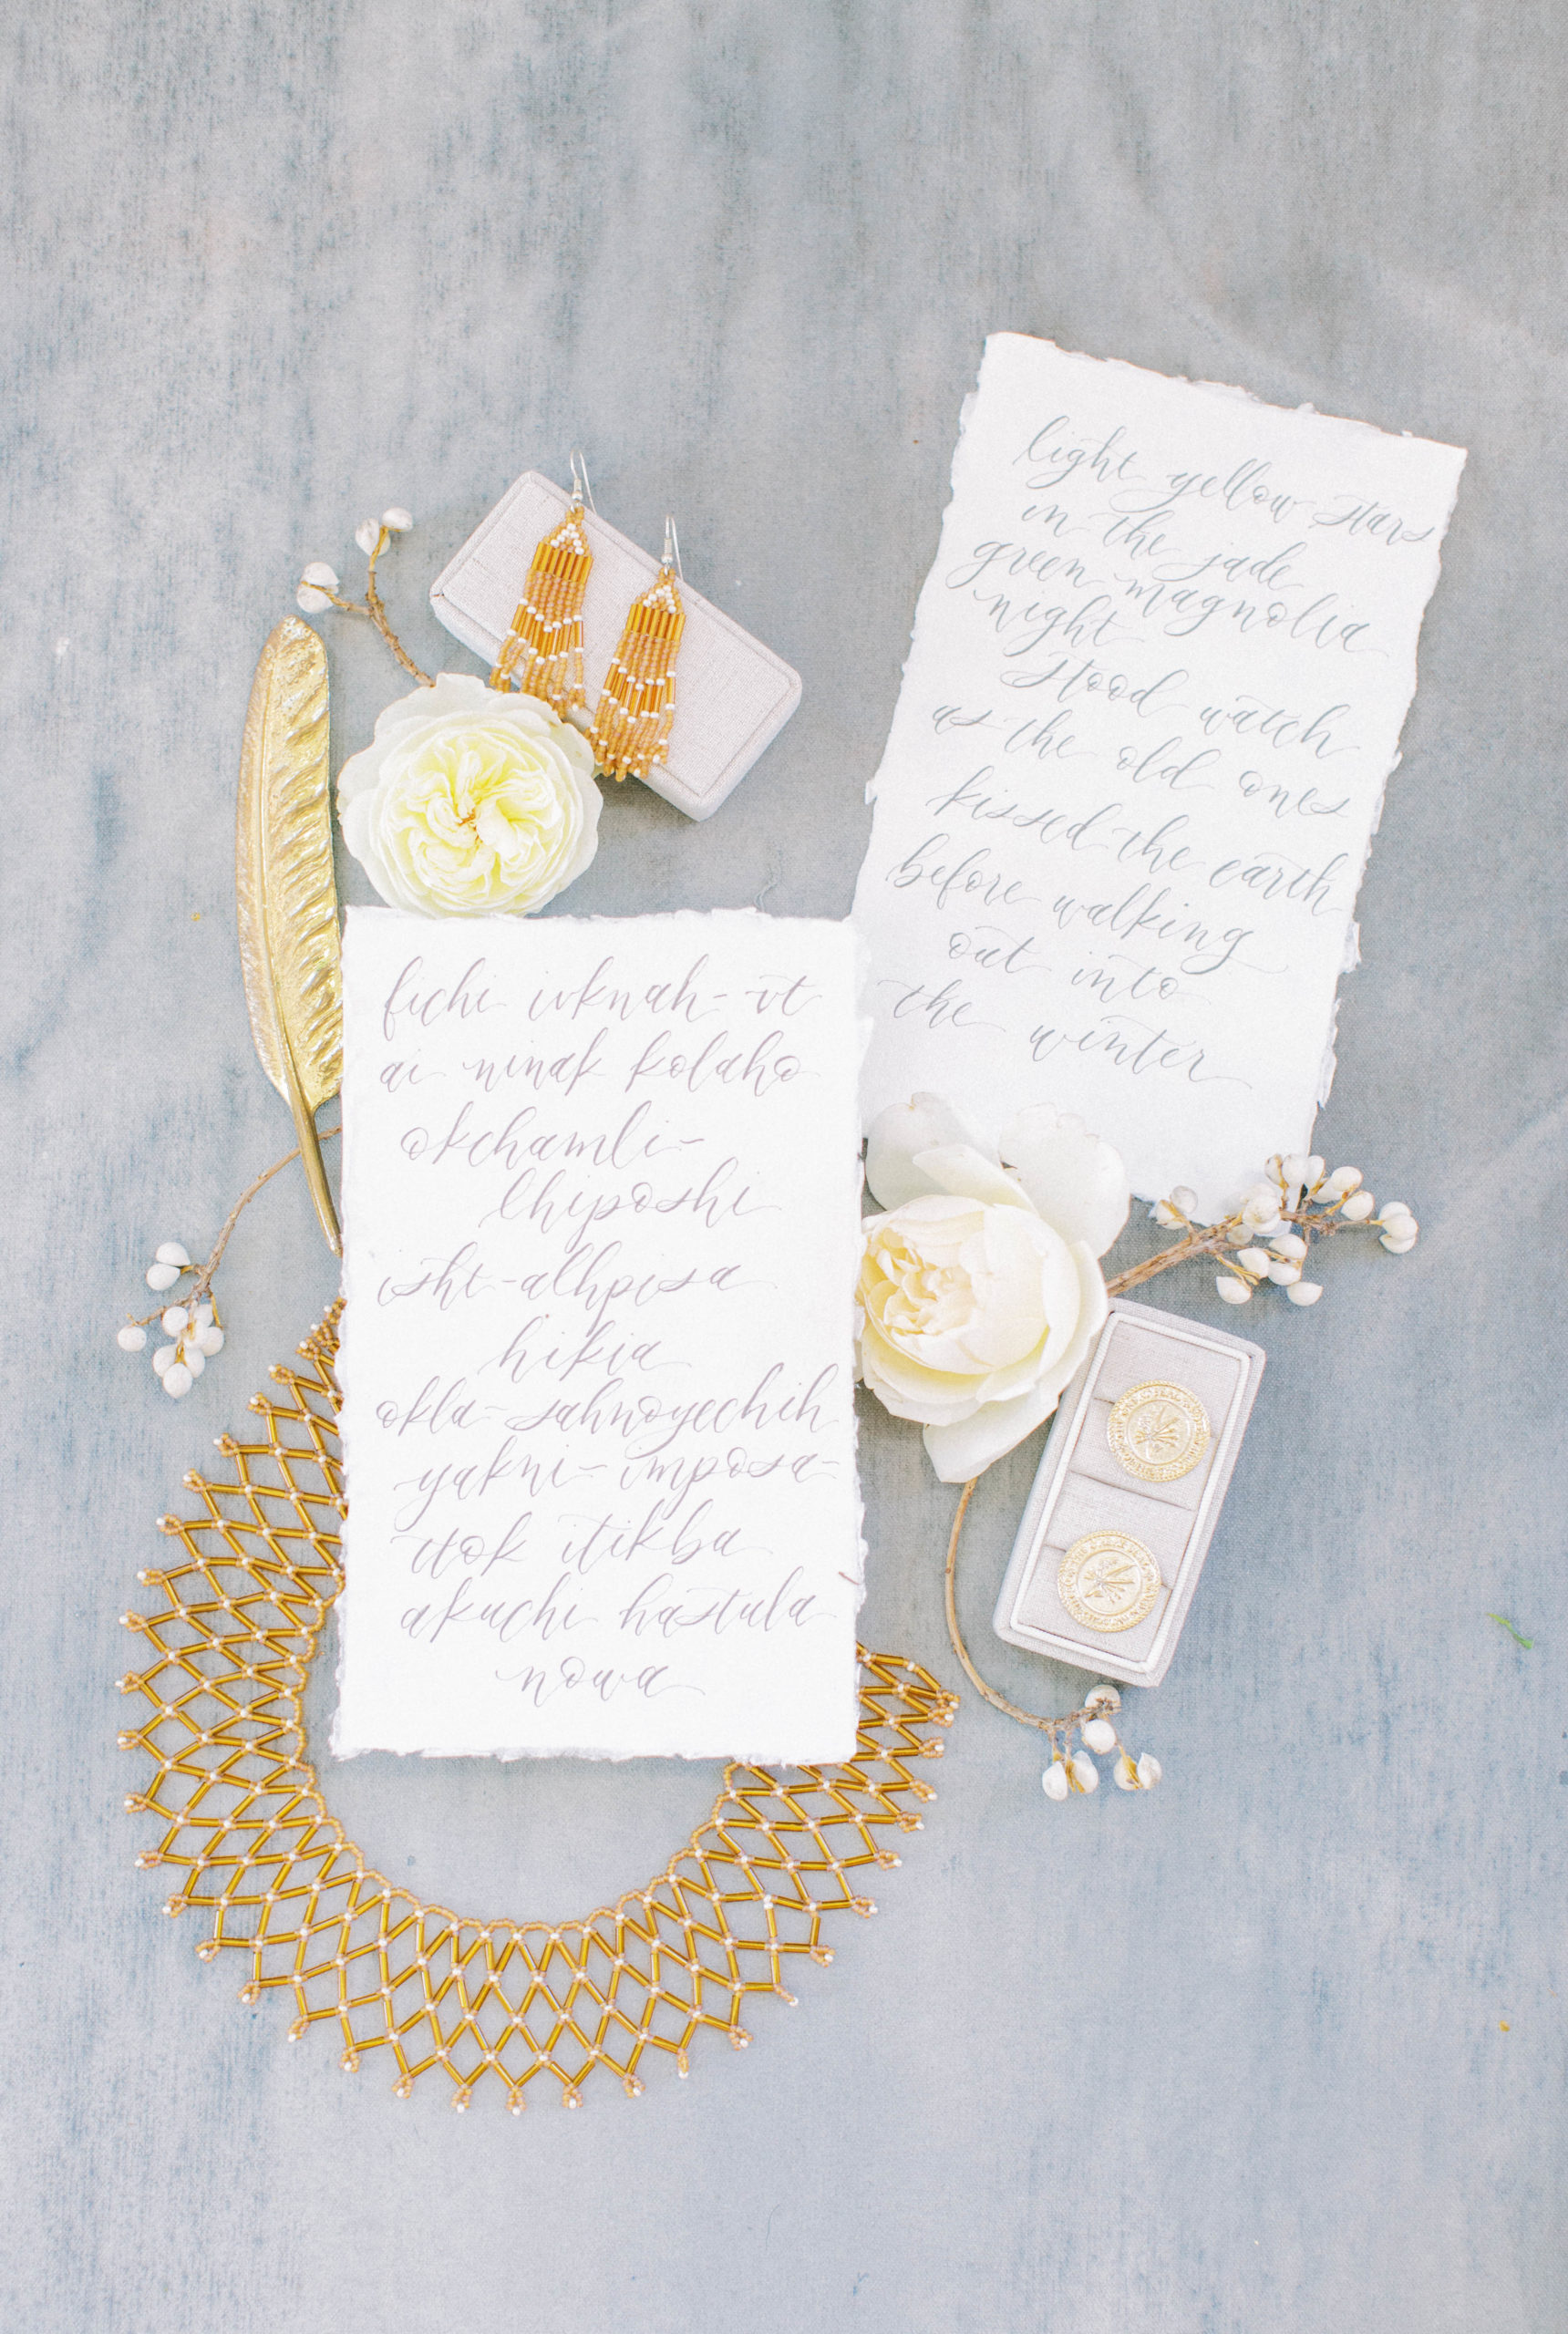 fichi vknah-vt
ai ninak kolaho
okchamli-
lhiposhi
isht-alhpisa
hikia
okla-sahnoyechih
yakni-imposa-
ttok itikba
akuchi hastula
nowa
light yellow stars
in the jade
green magnolia
night
stood watch
as the old ones
kissed the earth
before walking
out into
the winter